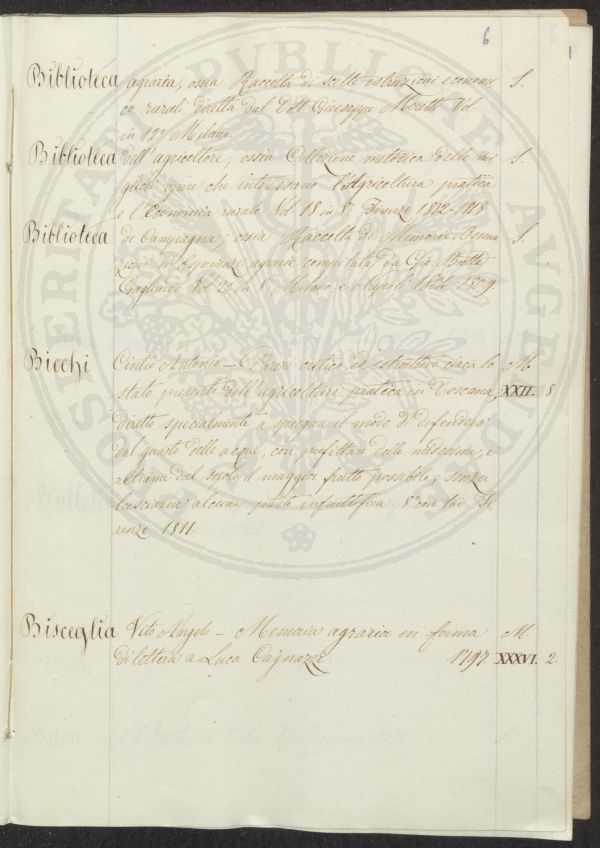 6
Biblioteca agraria, ossia Raccolta di scelte istruzioni economi S.
co rurali diretta dal Dott Giuseppe Moretti Vol
in 12° Milano
Biblioteca dell'agricoltore, ossia Collezione metodica delle mi S.
gliori opere che interessano l'Agricoltura pratica
e l'Economia rurale Vol 18 in 8° Firenze 1812-1818
Biblioteca di Campagna, ossia Raccolta di Memorie, Osserva S.
zioni ed Esperienze agrarie compilata da Gio. Batta
Gagliardo Vol 20 in 8° Milano e Napoli 1809
Bicchi Cintio Antonio – critico ed istruttivo circa lo M
stato presente dell'agricoltura pratica in Toscana, XXII. 8.
diretto specialmente a spiegare il modo di difendersi
dal guasto delle acque, con profittare delle medesime, e
retrarre del suolo il maggior frutto possibile, senza
lasciarne alcuna parte infruttifera. 8° con tav. Fi
renze 1811
Bisceglia Vito Angelo – Memoria agraria in forma M
di lettera a Luca Cagnazzi. 1797. XXXVI. 2.